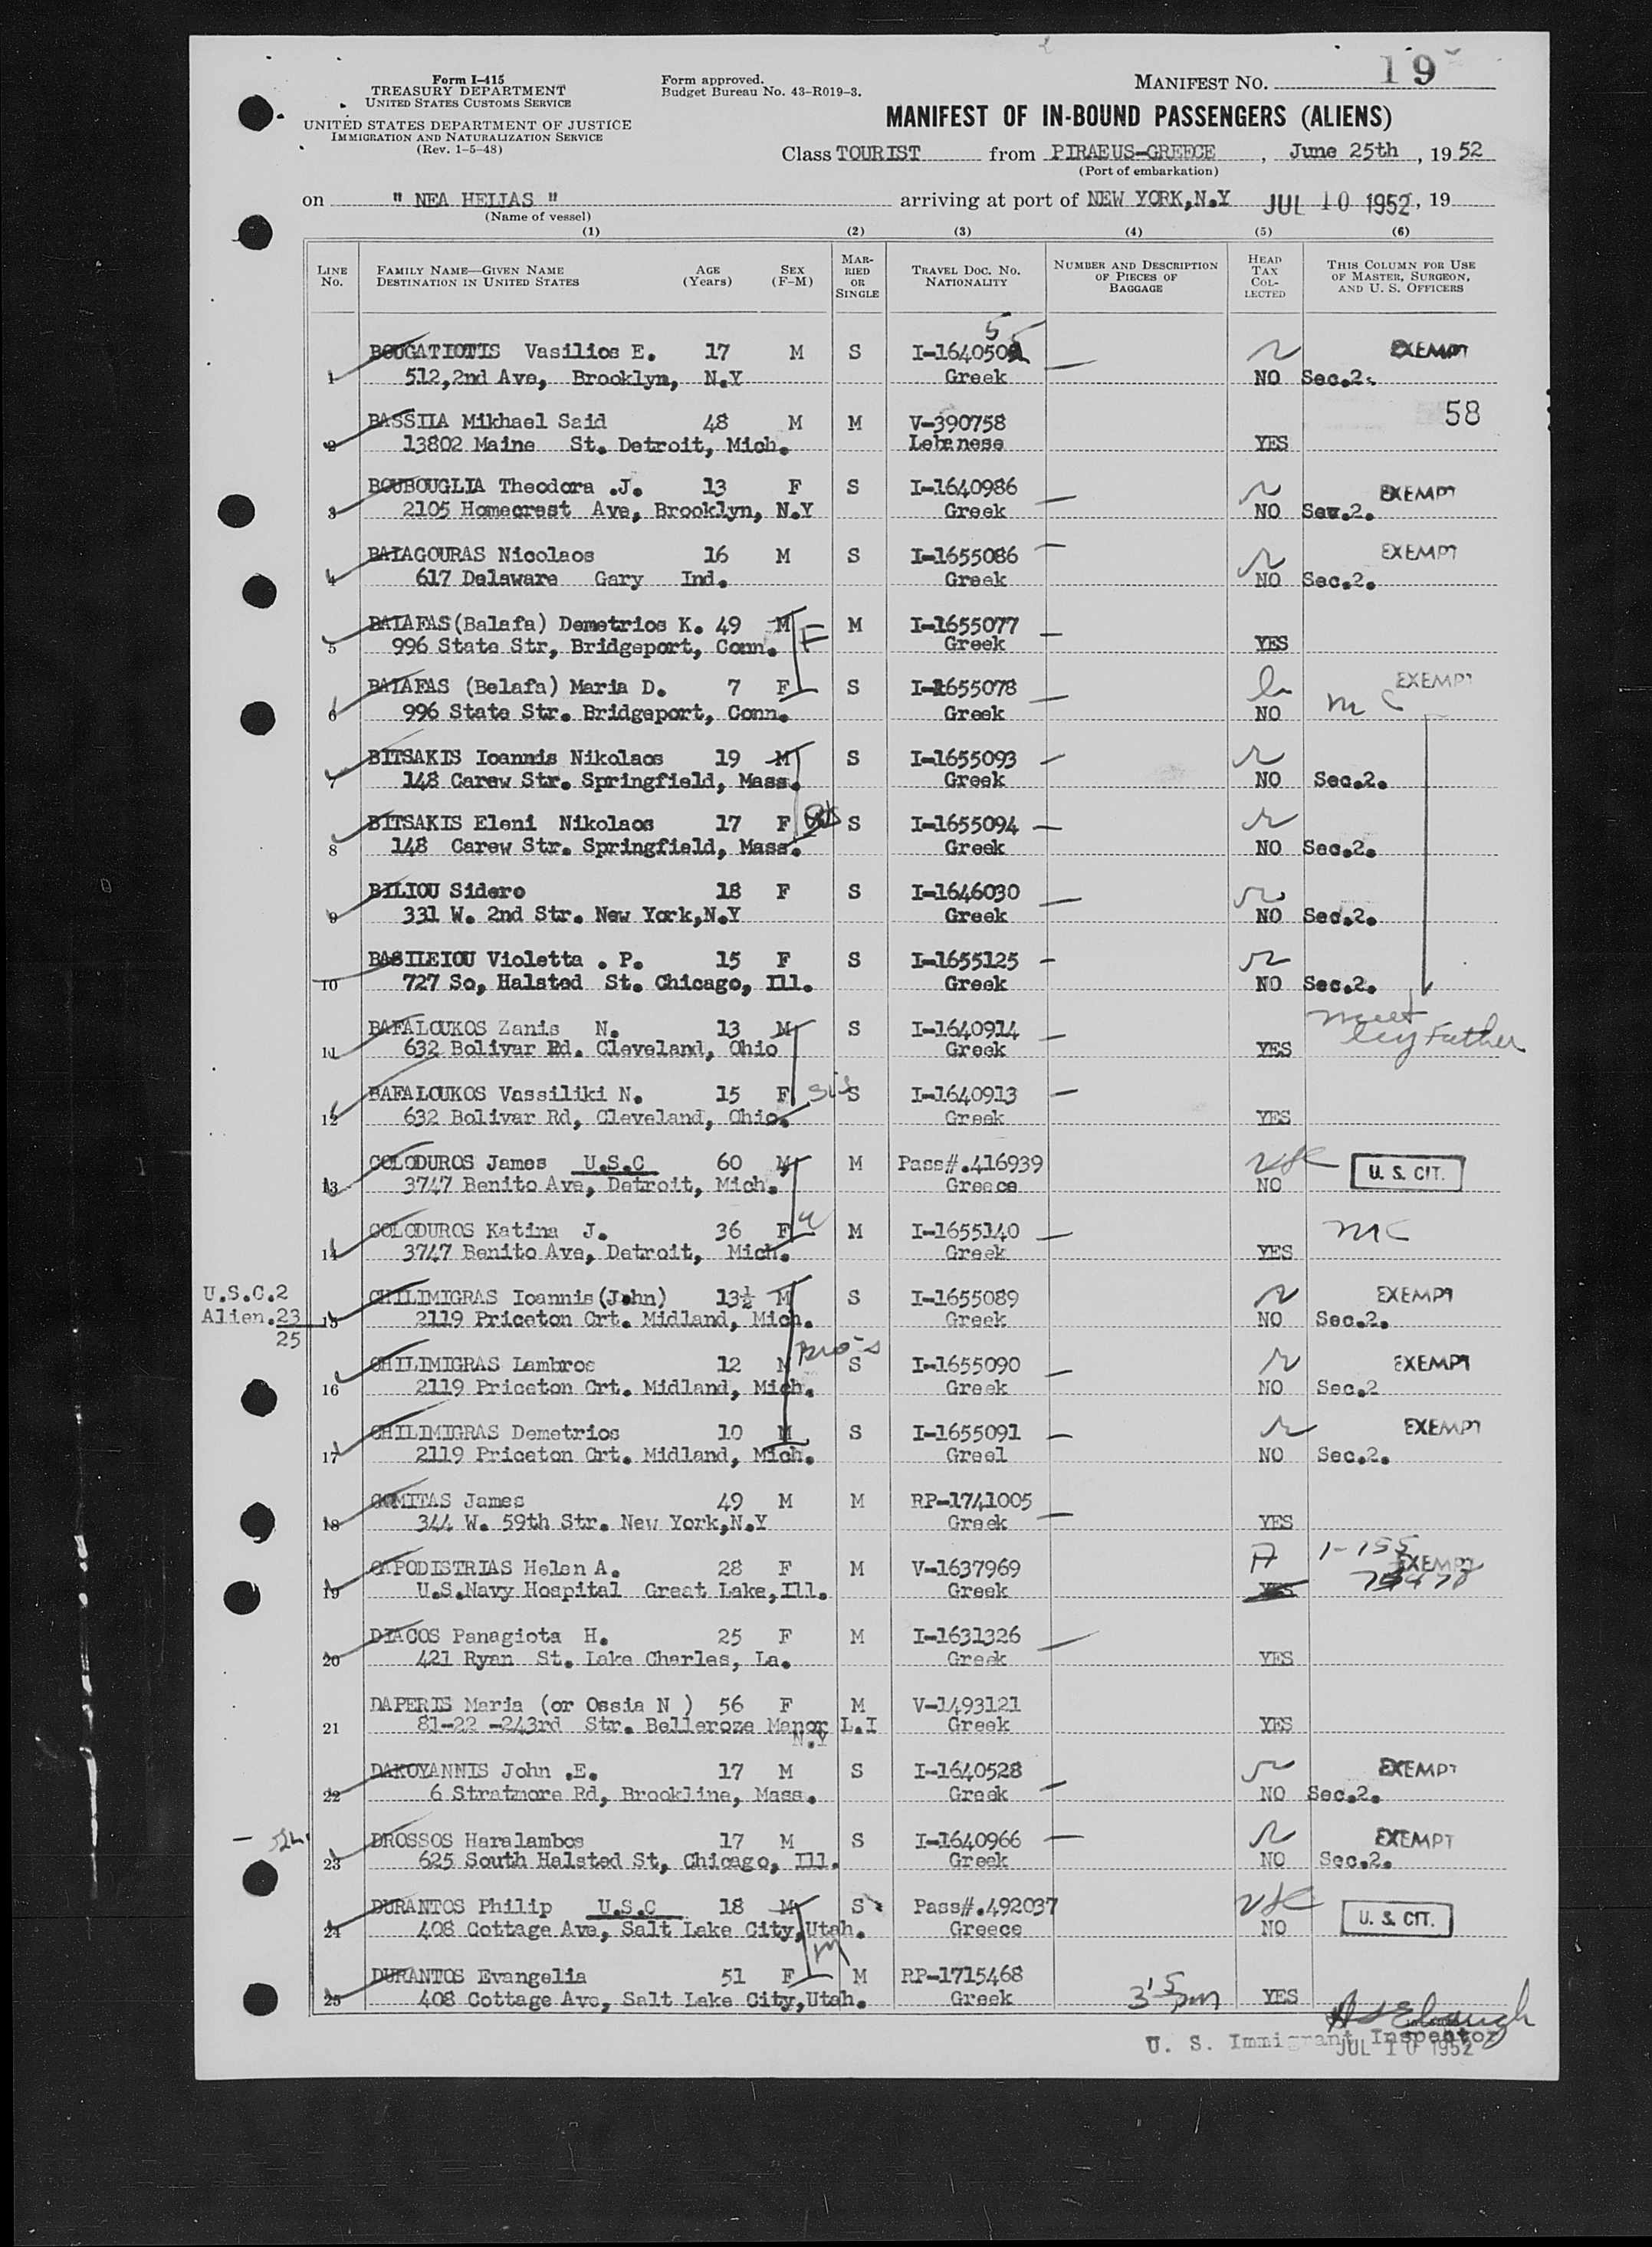 Form I-415
TREASURY DEPARTMENT
UNITED STATES CUSTOMS SERVICE
UNITED STATES DEPARTMENT OF JUSTICE
IMMIGRATION AND NATURALIZATION SERVICE
(Rev. 1-5-48)
Form approved.
Budget Bureau No. 43-R019-3.
MANIFEST NO. 19
MANIFEST OF IN-BOUND PASSENGERS (ALIENS)
Class TOURIST from PIRAEUS-GREECE, June 25th, 1952
(Port of embarkation)
on " NEA HELLAS " arriving at port of NEW YORK,N.Y JUL 10 1952, 19
(Name of vessel)
(1) (2) (3) (4) (5) (6)
LINE No. FAMILY NAME—GIVEN NAME DESTINATION IN UNITED STATES AGE (Years) SEX (F-M) MARRIED OR SINGLE TRAVEL DOC. NO. NATIONALITY NUMBER AND DESCRIPTION OF PIECES OF BAGGAGE HEAD TAX COLLECTED THIS COLUMN FOR USE OF MASTER, SURGEON, AND U. S. OFFICERS
55
BOUGATIOTIS Vasilios E. 17 M S I-164050 EXEMPT
1 512,2nd Ave, Brooklyn, N.Y Greek NO Sec.2.
58
BASSILA Mikhael Said 48 M M V-390758
2 13802 Maine St. Detroit, Mich. Lebanese YES
BOUBOUGLIA Theodora .J. 13 F S I-1640986 EXEMPT
3 2105 Homecrest Ave, Brooklyn, N.Y Greek NO Sec.2.
BALAGOURAS Nicolaos 16 M S I-1655086 EXEMPT
4 617 Delaware Gary Ind. Greek NO Sec.2.
BALAFAS(Balafa) Demetrios K. 49 M F M I-1655077
5 996 State Str, Bridgeport, Conn. Greek YES
BALAFAS (Belafa) Maria D. 7 F S I-1655078 EXEMPT
6 996 State Str. Bridgeport, Conn. Greek NO m c
BITSAKIS Ioannis Nikolaos 19 M S I-1655093
7 148 Carew Str. Springfield, Mass. Greek NO Sec.2.
BITSAKIS Eleni Nikolaos 17 F S I-1655094
8 148 Carew Str. Springfield, Mass. Greek NO Sec.2.
BILIOU Sidero 18 F S I-1646030
9 331 W. 2nd Str. New York,N.Y Greek NO Sec.2.
BASILEIOU Violetta . P. 15 F S I-1655125
10 727 So, Halsted St. Chicago, Ill. Greek NO Sec.2.
meet
by Father
BAFALOUKOS Zanis N. 13 M S I-1640914
11 632 Bolivar Rd. Cleveland, Ohio Greek YES
BAFALOUKOS Vassiliki N. 15 F sis S I-1640913
12 632 Bolivar Rd, Cleveland, Ohio. Greek YES
COLODUROS James U.S.C 60 M M Pass#.416939 U. S. CIT.
13 3747 Benito Ave, Detroit, Mich. Greece NO
COLODUROS Katina J. 36 F M I-1655140 m c
14 3747 Benito Ave, Detroit, Mich. Greek YES
U.S.C.2
Alien.23
25
CHILIMIGRAS Ioannis(John) 13½ M S I-1655089 EXEMPT
15 2119 Priceton Crt. Midland, Mich. Greek NO Sec.2.
CHILIMIGRAS Lambros 12 M Bro's S I-1655090 EXEMPT
16 2119 Priceton Crt. Midland, Mich. Greek NO Sec.2
CHILIMIGRAS Demetrios 10 M S I-1655091 EXEMPT
17 2119 Priceton Crt. Midland, Mich. Greel NO Sec.2.
COMITAS James 49 M M RP-1741005
18 344 W. 59th Str. New York,N.Y Greek YES
CAPODISTRIAS Helen A. 28 F M V-1637969 A 1-155 EXEMPT
19 U.S.Navy Hospital Great Lake,Ill. Greek YES
DIACOS Panagiota H. 25 F M I-1631326
20 421 Ryan St. Lake Charles, La. Greek YES
DAPERIS Maria (or Ossia N ) 56 F M V-1493121
21 81-22 -243rd Str. Belleroze Manor L.I Greek YES
N.Y
DAKOYANNIS John .E. 17 M S I-1640528 EXEMPT
22 6 Stratmore Rd, Brookline, Mass. Greek NO Sec.2.
DROSSOS Haralambos 17 M S I-1640966 EXEMPT
23 625 South Halsted St, Chicago, Ill. Greek NO Sec.2.
DURANTOS Philip U.S.C 18 M S Pass#.492037 U. S. CIT.
24 408 Cottage Ave, Salt Lake City,Utah. Greece NO
m
DURANTOS Evangelia 51 F M RP-1715468
25 408 Cottage Ave, Salt Lake City,Utah. Greek 3 15 pm YES
U. S. Immigrant Inspector
JUL 10 1952